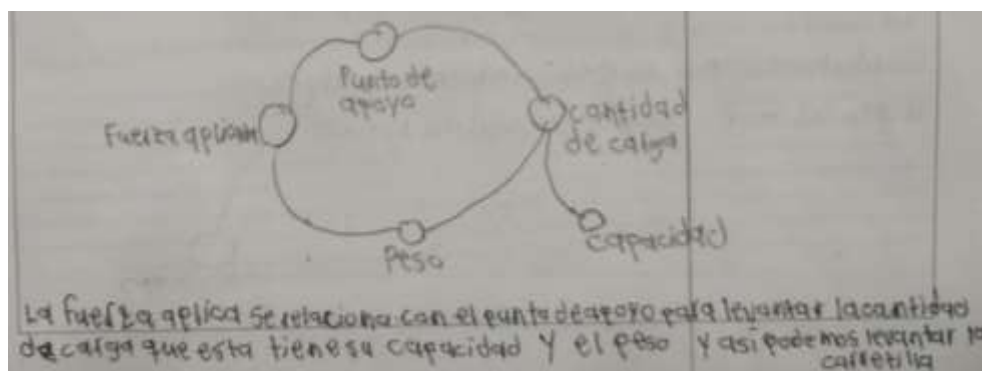 Punto de
apoyo
Fuerza aplicar
cantidad
de carga
Peso
capacidad
La fuerza aplica se relaciona con el punto de apoyo para levantar la cantidad
de carga que esta tiene su capacidad y el peso y asi podemos levantar la
carretilla